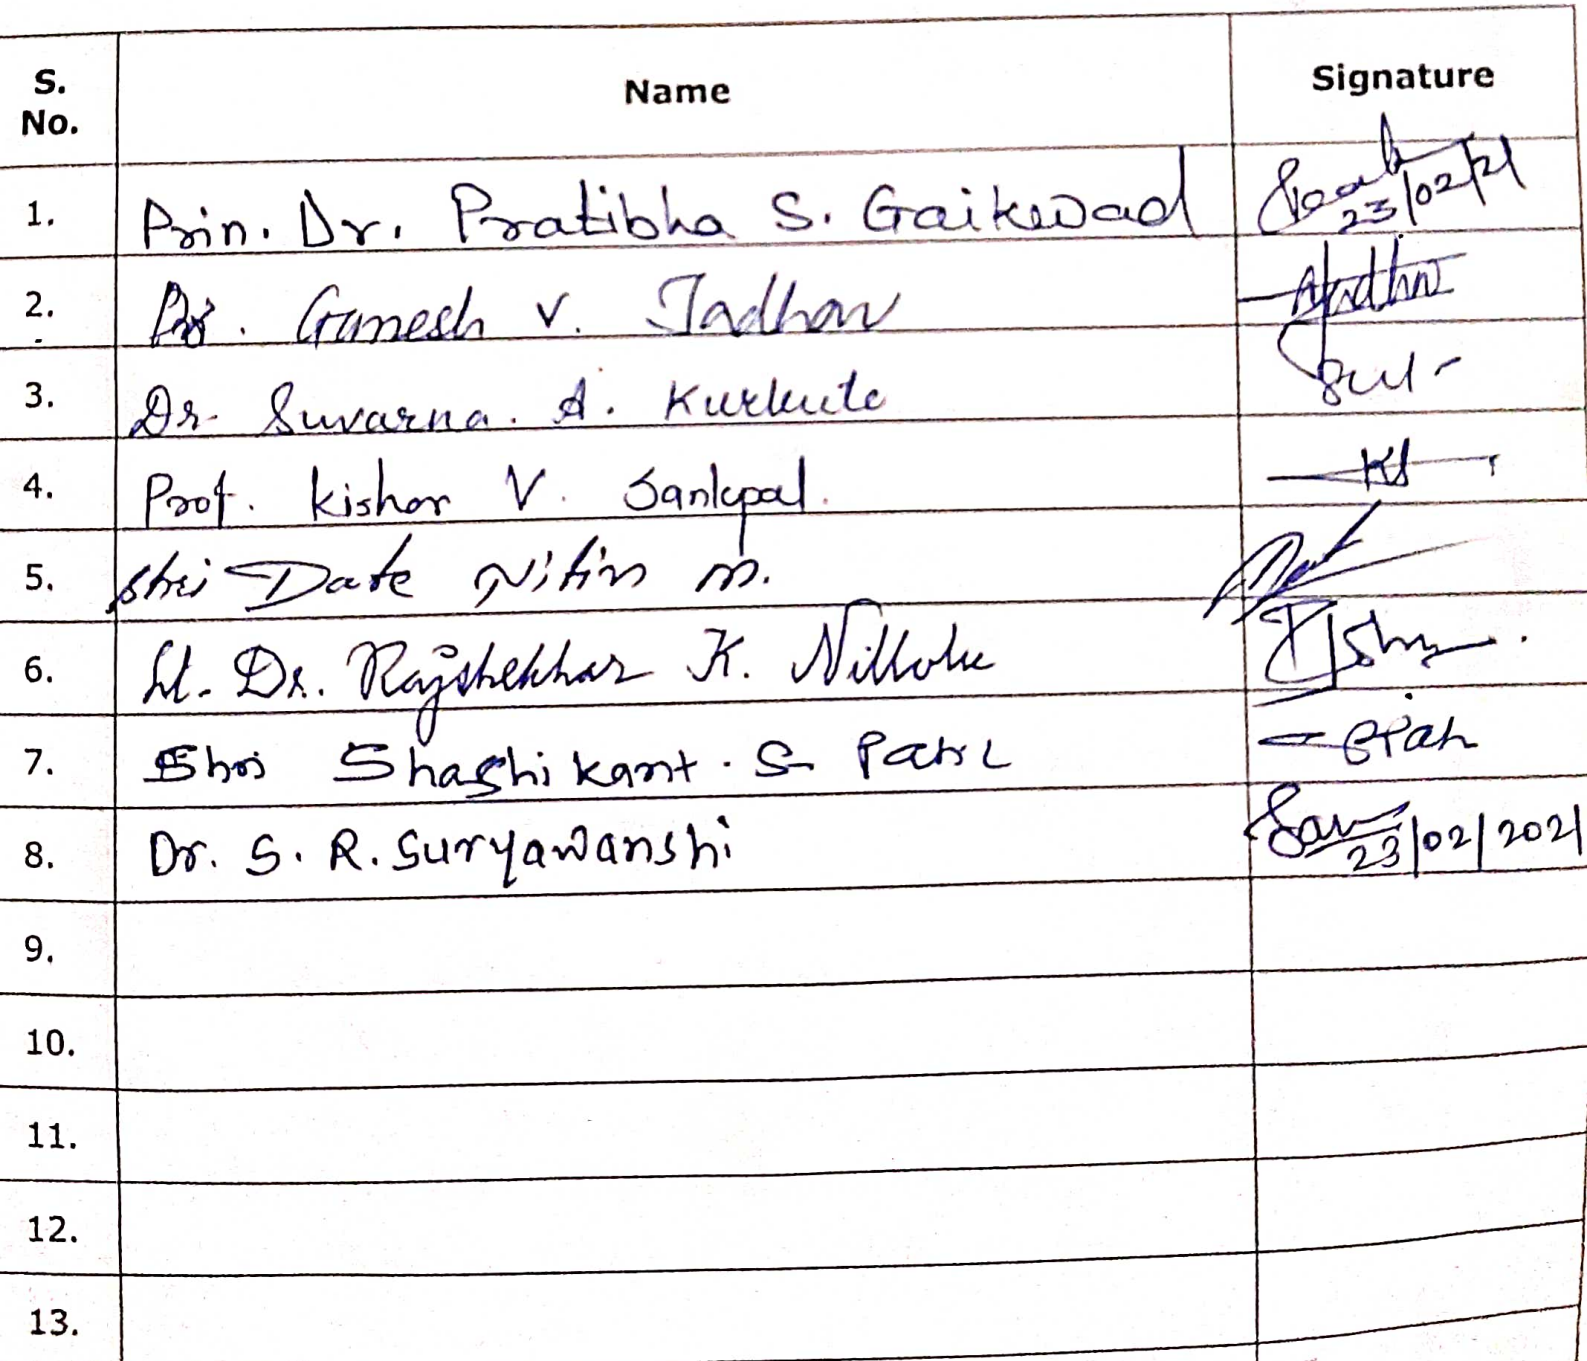 S. No. Name Signature
1. Prin. Dr. Pratibha S. Gaikwad 23/02/21
2. Ganesh V. Jadhav
3. Dr. Suvarna. A. Kurkute
4. Prof. Kishor V. Sankpal.
5. Shri Date Nitin M.
6. Lt. Dr. Rajshekhar K. Nillolu
7. Shri Shashikant. S. Patil
8. Dr. S. R. Suryawanshi 23/02/2021
9.
10.
11.
12.
13.